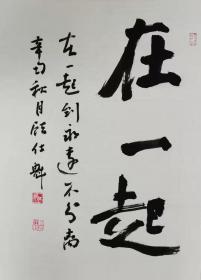 在一起
在一起到永远不分离
辛丑秋月顾仕魁